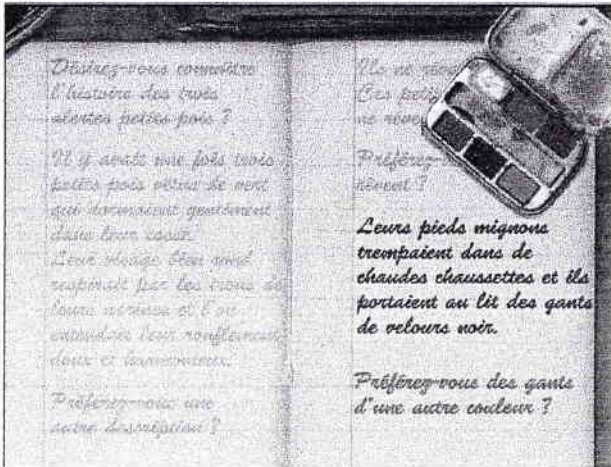 Désirez-vous connaître
l'histoire des trois
alertes petits pois ?
Il y avait une fois trois
petits pois vêtus de vert
qui dormaient gentiment
dans leur cosse.
Leur visage bien rond
respirait par les trous de
leurs narines et l'on
entendait leur ronflement
doux et harmonieux.
Préférez-vous une
autre description ?
Ils ne
Ces petits
ne
Préférez-
rêvent ?
Leurs pieds mignons
trempaient dans de
chaudes chaussettes et ils
portaient au lit des gants
de velours noir.
Préférez-vous des gants
d'une autre couleur ?